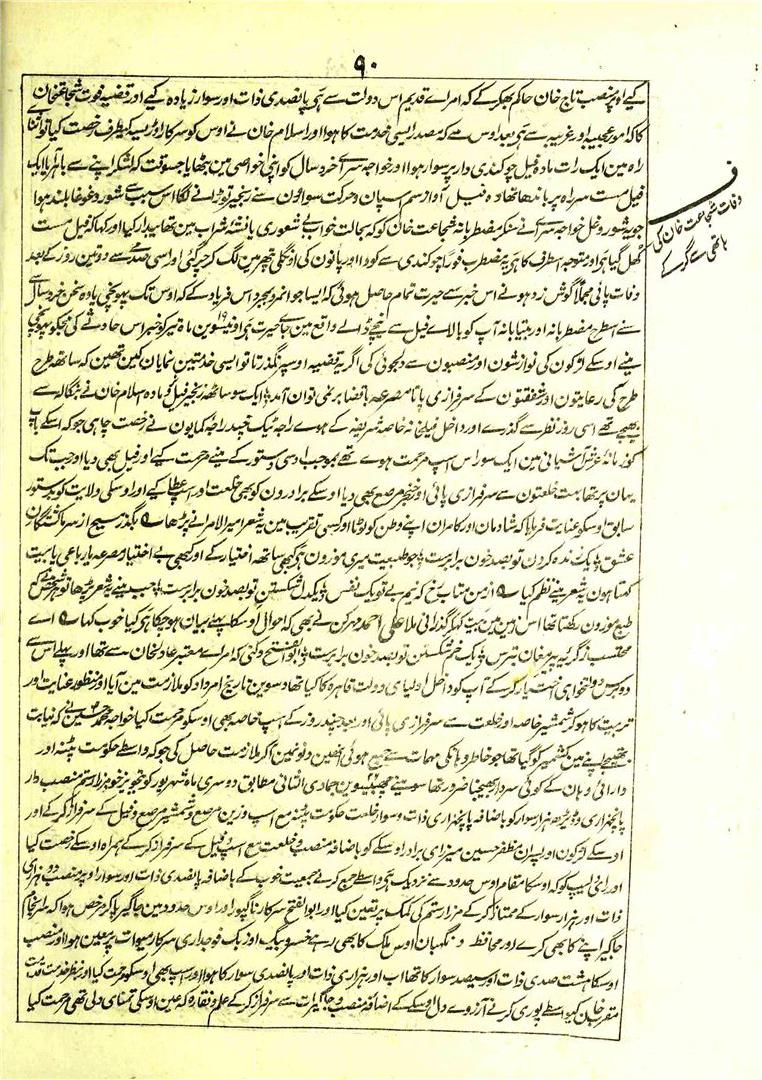 ۹۰
کیے اوپر منصب تاج خان حاکم بھکر کے کہ امراے قدیم اس دولت سے ہی پانصدی ذات اور سوار زیادہ کیے اور قضیہ فوت شجاعتخان
کا کہ امور عجیبہ اور غریبہ سے ہی بعد اوس سے کہ مصدر ایسی خدمت کا ہوا اور اسلام خان نے اوس کو سرکار اوڑیسہ کیطرف رخصت کیا تو اثناے
راہ مین ایک رات مادہ فیل چوکندی دار پر سوار ہوا اور خواجہ سراے خرد سال کو اپنی خواصی مین بٹھایا جسوقت کہ لشکر اپنے سے باہر آیا ایک
فیل مست سر راہ پر باندھا تھا وہ فیل آواز سم اسپان وحرکت سوارون سے زنجیر توڑانے لگا اس سبب سے شور و غوغا بلند ہوا
جو یہ شور وغل خواجہ سراے نے سنکر مضطربانہ شجاعت خان کو کہ بحالت خواب بے شعوری یا نشہ شراب مین تھا بیدار کیا اور کہا کہ فیل مست
کھل گیا ہی اور متوجہ اسطرف کا ہی یہ مضطرب فوراً چوکندی سے کودا اور پانون کی اونگلی پتھر مین لگ کر چر گئی اور اسی صدمے سے دو تین روز کے بعد
وفات پائی مجملاً گوش زد ہونے اس خبر سے حیرت تمام حاصل ہوئی کہ ایسا جوانمرد بمجرد اس فریاد کے کہ اوس تک پہونچی یا وہ سخن خرد سال سے
سے اسطرح مضطربانہ اور بیتابانہ آپ کو بالاے فیل سے نیچے ڈالے واقع مین جاے حیرت ہی اونیسوین ۱۹ ماہ تیر کو خبر اس حادثے کی مجکو پہونچی
مینے اوسکے لڑکون کی نوازشون اور منصبون سے دلجوئی کی اگر یہ قضیہ اوسپر نگذرتا تو ایسی خدمتین نمایان کین تھین کہ ساتھ طرح
طرح کی رعایتون اور شفقتون کے سرفرازی پاتا مصرعہ باقضا بر نمی توان آمد ایک سو ساٹھ زنجیر فیل نر ومادہ اسلام خان نے بنگالہ سے
بھیجے تھے اسی روز نظر سے گذرے اور داخل فیلخانہ خاصہ شریفہ کے ہوے راجہ ٹیک چند راجہ کمایون نے رخصت چاہی جو کہ اسکے باپ
کو زمانہ عرش آشیانی مین ایک سو راس اسپ مرحمت ہوے تھے بموجب اوسی دستور کے مینے مرحمت کیے اور فیل بھی دیا اور جب تک
یہان پر تھا بہت خلعتون سے سرفرازی پائی اور خنجر مرصع بھی دیا اوسکے برادرون کو بھی خلعت اور اسپ عطا کیے اور اوسکی ولایت کو بدستور
سابق اوسکو عنایت فرمایا کہ شادمان اور کامران اپنے وطن کو لوٹا اور کسی تقریب مین یہ شعر امیر الامرا نے پڑھا بگذر مسیح از سر ما کشتگان
عشق یک زندہ کردن تو بصد خون برابرست جو طبیعت میری موزون ہی کبھی ساتھ اختیار کے اور کبھی بے اختیار مصرعہ یا رباعی یا بیت
کہتا ہون یہ شعر مینے نظم کیا از من متاب رخ کہ نیم بے تو یک نفس یکدل شکستن تو بصد خون برابرست جب مینے یہ شعر پڑھا تو ہر شخص نے کہ
طبع موزون رکھتا تھا اس زمین مین بیت کہکر گذرانی ملا علی احمد مہرکن نے بھی کہ احوال اوسکا پہلے بیان ہو چکا ہی کیا خوب کہا اے
محتسب ز گریہ پیر مغان بترس یک خم شکستن تو بصد خون برابرست ابوالفتح دکنی کہ امراے معتبر عادلخان سے تھا اور پہلے اس سے
دو برس دولتخواہی اختیار کر کے آپ کو داخل اولیاے دولت قاہرہ کا کیا تھا دسوین تاریخ امرداد کو ملازمت مین آیا اور منظور عنایت اور
تربیت کا ہو کر شمشیر خاصہ اور خلعت سے سرفرازی پائی اور بعد چند روز کے اسپ خاصہ بھی اوسکو مرحمت کیا خواجہ محمد حسین کہ نیابت
بھتیجے اپنے مین کشمیر گو گیا تھا جو خاطر وہانکی مہمات سے جمع ہوئی انھین دنونمین آکر ملازمت حاصل کی جو کہ واسطے حکومت پٹنہ اور
دارائی وہان کے کوئی سردار بھیجنا ضرور تھا سو مینے چھبیسوین جمادی الثانی مطابق دوسری ماہ شہریور کو تجویز خود مرزا رستم منصب دار
پانچہزاری ذات وڈیڑھ ہزار سوار کو باضافہ پانچہزاری ذات وسوار خلعت حکومت پٹنہ مع اسپ وزین مرصع وشمشیر مرصع وفیل کے سرفراز کر کے اور
اوسکے لڑکون اور پسران مظفر حسین میرزاے برادر اوسکے کو باضافہ منصب وخلعت مع اسپ وفیل کے سرفراز کر کے ہمراہ اوسکے رخصت کیا
اور رائے دلیپ کو کہ اوسکا مقام اوس حدود سے نزدیک ہی واسطے جمع کرنے جمعیت خوب کے باضافہ پانصدی ذات اور سوار اوپر منصب دو ہزاری
ذات اور ہزار سوار کے ممتاز کر کے مرزا رستم کی کمک پر تعین کیا اور ابو الفتح سرکار ناگپور اور اوس حدود مین جاگیر پاکر مرخص ہوا کہ سرانجام
جاگیر اپنے کا بھی کرے اور محافظ و نگہبان اوس ملک کا بھی رہے خسرو بیگ اوزبک فوجداری سرکار میوات پر معین ہوا اور منصب
اوسکا ہشت صدی ذات اور سیصد سوار کا تھا اب اور ہزاری ذات اور پانصدی سوار کا ہوا اور اسپ بھی اوسکو مرحمت کیا اور نظر خدمت قدیمت
مقرب خان کیواسطے پوری کرنے آرزوے دل اوسکے کے اضافہ منصب و جاگیرات سے سرفراز کر کے علم ونقارہ کہ عین اوسکی تمناے دلی تھی مرحمت کیا
ف
وفات شجاعت خان کی
ہاتھی سے گر کے